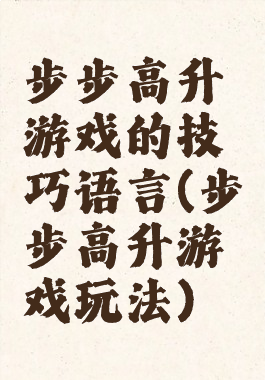 步步高升
游戏的技
巧语言(步
步高升游
戏玩法)